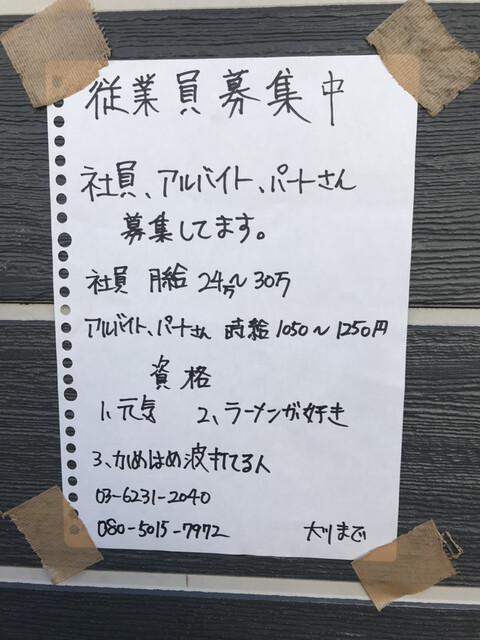 従業員募集中
社員、アルバイト、パートさん
募集してます。
社員 月給 24万〜30万
アルバイト、パートさん 時給 1050〜1250円
資格
1、元気 2、ラーメンが好き
3、かめはめ波打てる人
03-6231-2040
080-5015-7972 まで